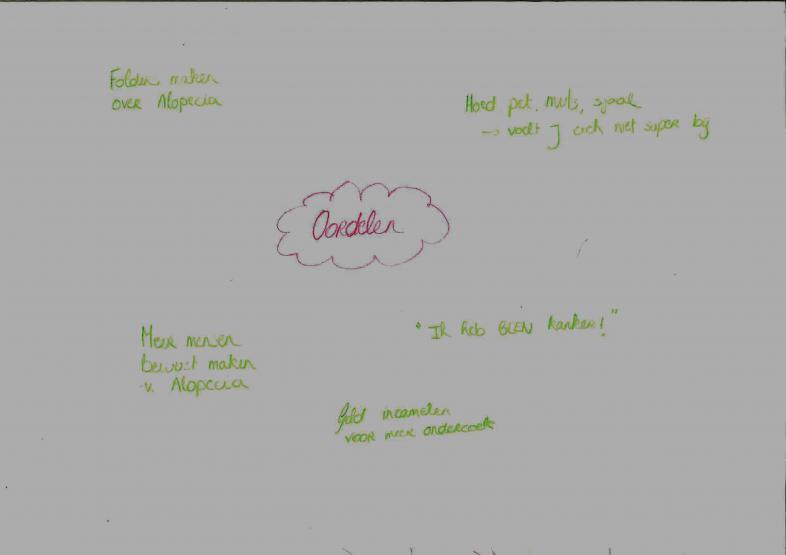 Folder maken
over Alopecia
Hoed pet, muts, sjaal
→ voelt J zich niet super bij
Oordelen
"Ik heb GEEN kanker!"
Meer mensen
bewust maken
v. Alopecia
Geld inzamelen
voor meer onderzoek